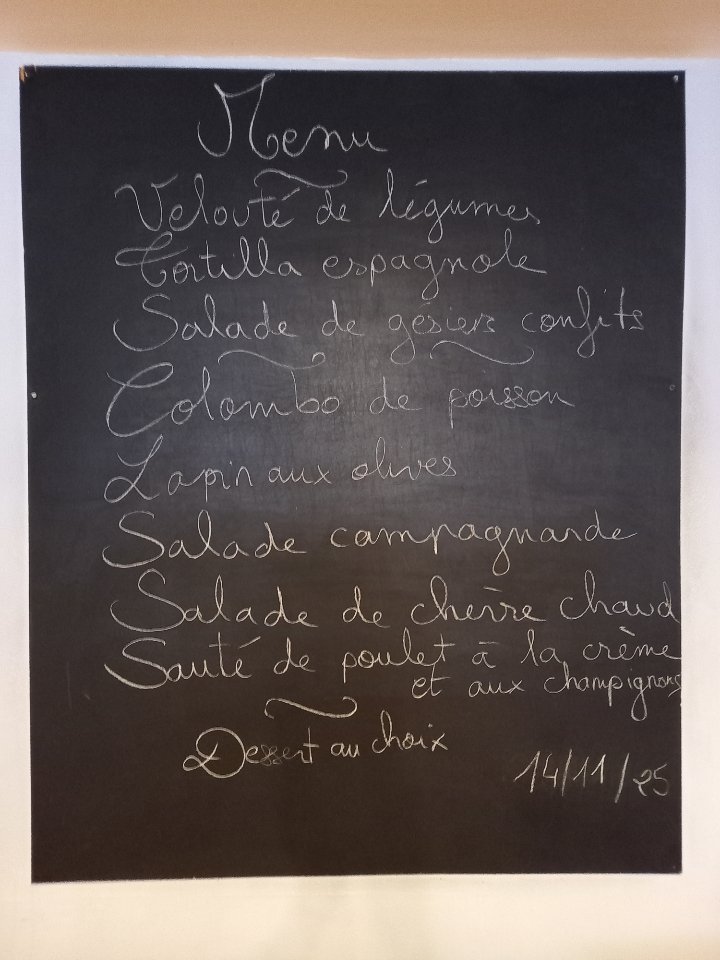 Menu
Velouté de légumes
Tortilla espagnole
Salade de gésiers confits
Colombo de poisson
Lapin aux olives
Salade campagnarde
Salade de chèvre chaud
Sauté de poulet à la crème
et aux champignons
Dessert au choix
14/11/25